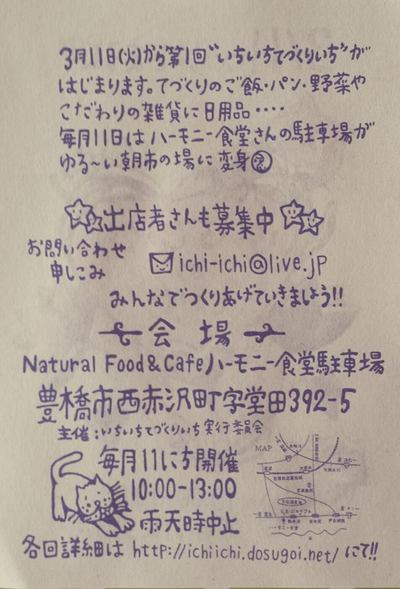 3月11日(火)から第1回"いちいちてづくりいち"が
はじまります。てづくりのご飯・パン・野菜や
こだわりの雑貨に日用品・・・・
毎月11日はハーモニー食堂さんの駐車場が
ゆる〜い朝市の場に変身
出店者さんも募集中
お問い合わせ
申しこみ
ichi-ichi@live.jp
みんなでつくりあげていきましょう!!
会場
Natural Food&Cafeハーモニー食堂駐車場
豊橋市西赤沢町字堂田392-5
主催:いちいちてづくりいち実行委員会
毎月11にち開催
10:00-13:00
雨天時中止
MAP
各回詳細は http://ichiichi.dosugoi.net/ にて!!